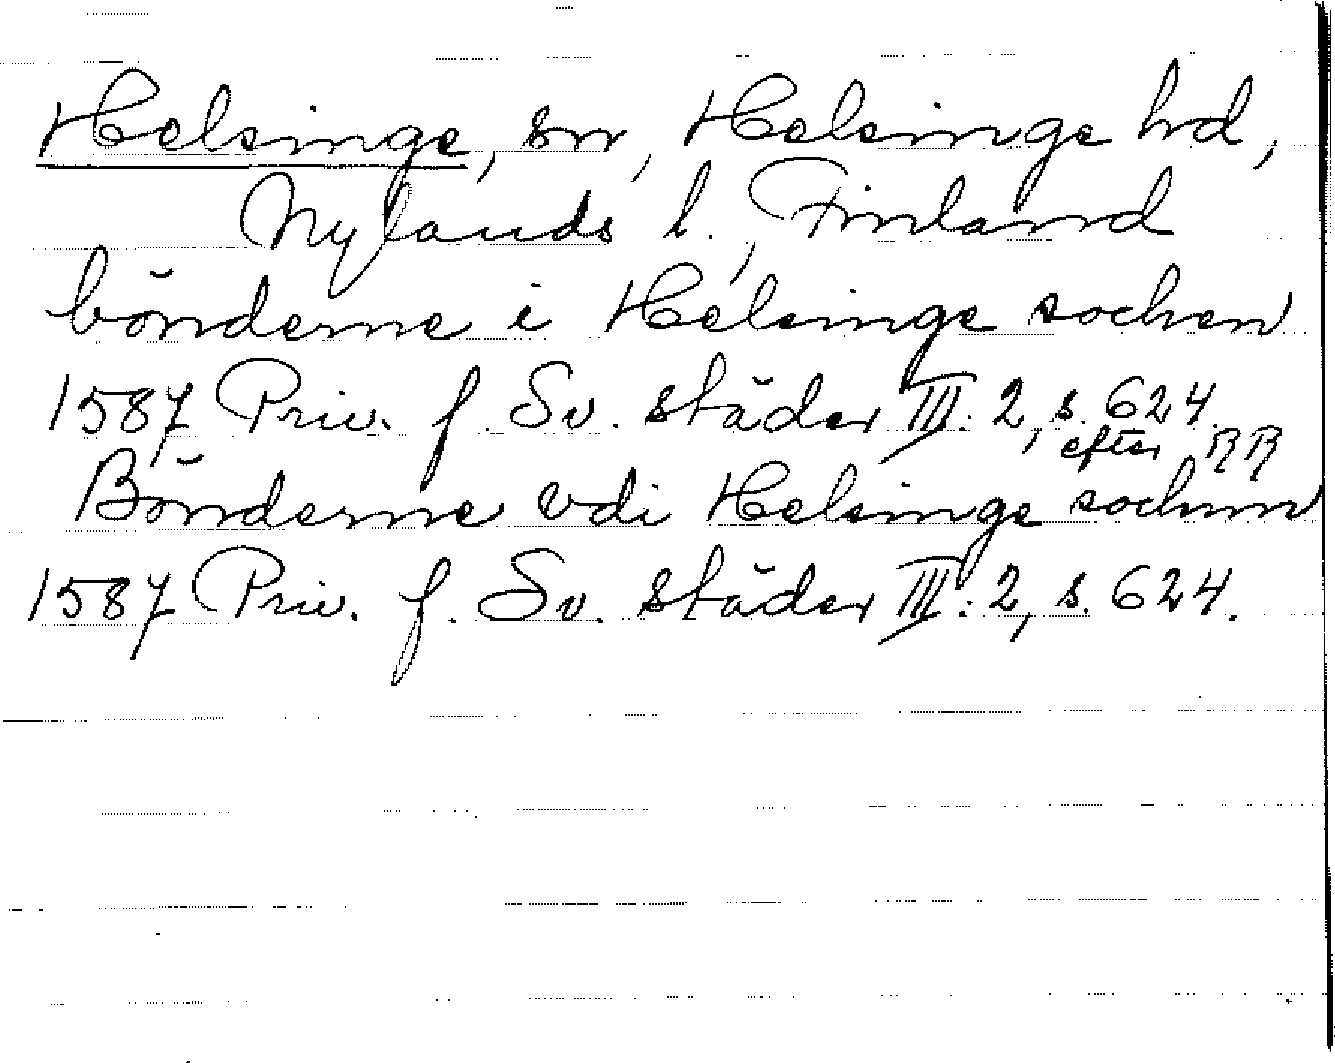 Helsinge, sn, Helsinge hd,
Nylands l., Finland
bönderne i Helsinge sochen
1587 Priv. f. Sv. städer III:2, s. 624.
efter RR
Bönderne vdi Helsinge sochnn
1587 Priv. f. Sv. städer III:2, s. 624.